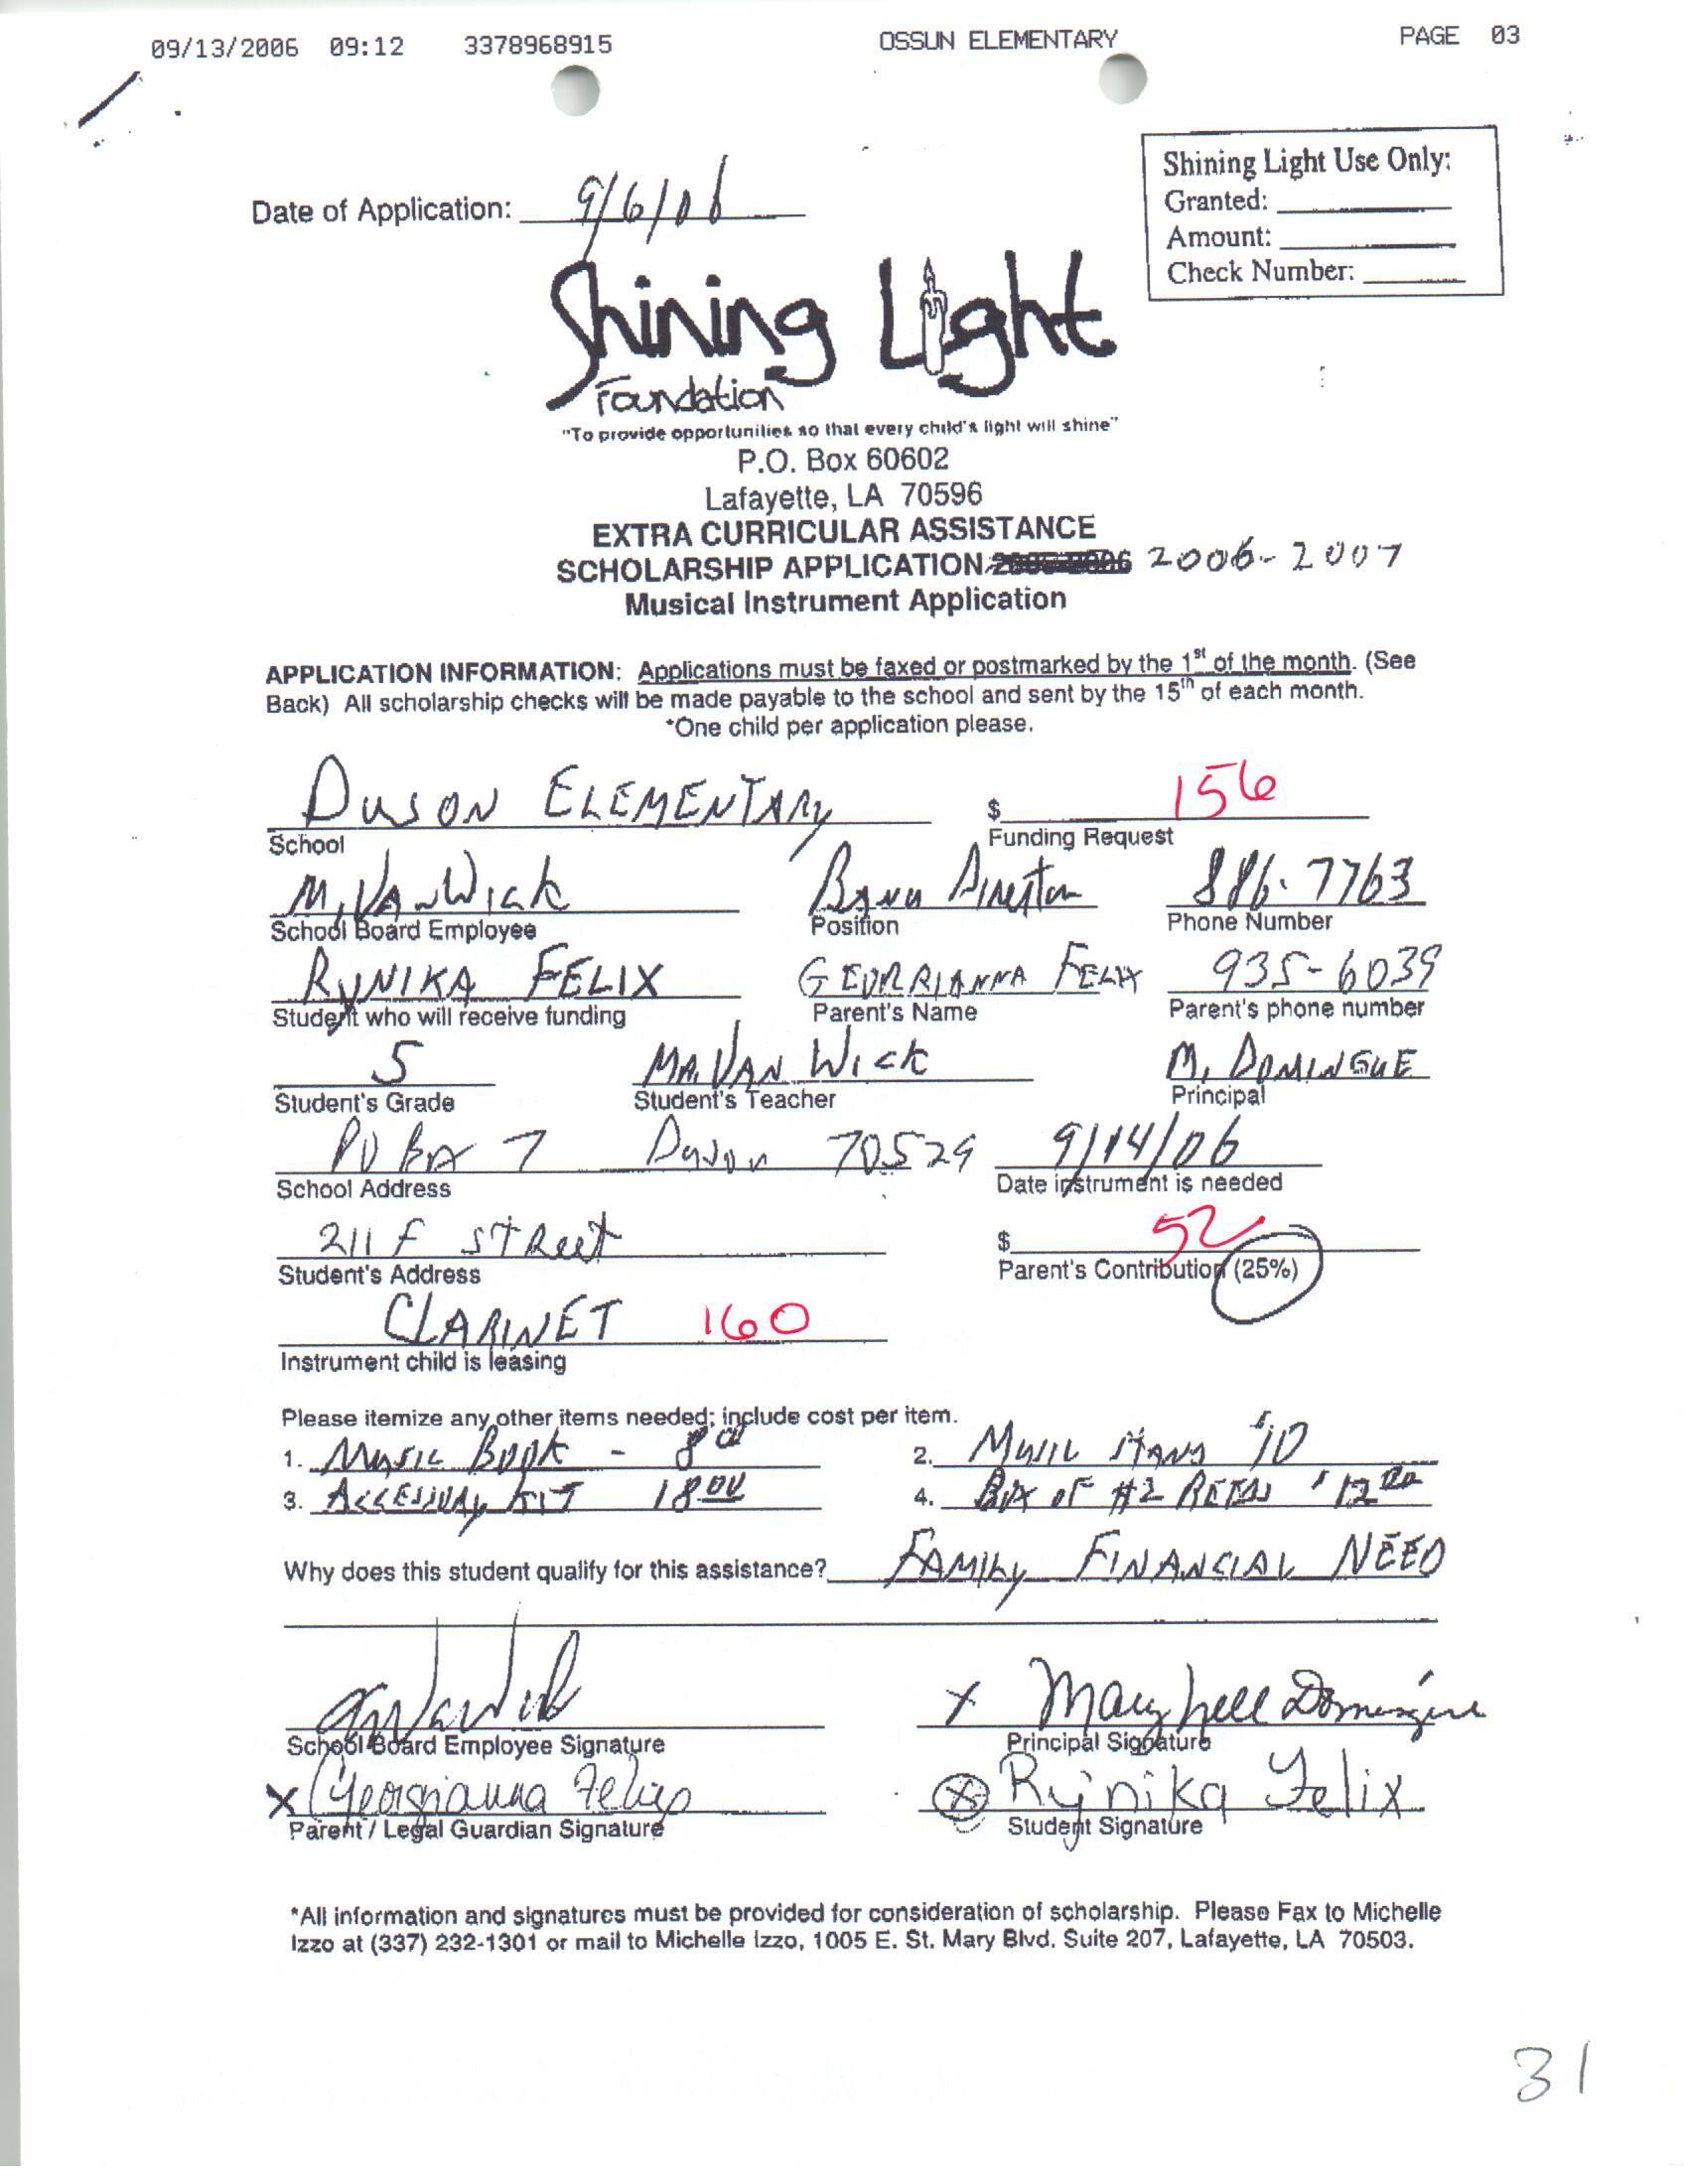 09/13/2006 09:12 3378968915 OSSUN ELEMENTARY PAGE 03
Shining Light Use Only:
Granted:
Amount:
Check Number:
Date of Application: 9/6/06
Shining Light
Foundation
"To provide opportunities so that every child's light will shine"
P.O. Box 60602
Lafayette, LA 70596
EXTRA CURRICULAR ASSISTANCE
SCHOLARSHIP APPLICATION 2006-2007
Musical Instrument Application
APPLICATION INFORMATION: Applications must be faxed or postmarked by the 1st of the month. (See
Back) All scholarship checks will be made payable to the school and sent by the 15th of each month.
*One child per application please.
DUSON ELEMENTARY $ 156
School Funding Request
M. VanWick Band Director 886-7763
School Board Employee Position Phone Number
RYNIKA FELIX GEORGIANNA FELIX 935-6039
Student who will receive funding Parent's Name Parent's phone number
5 MR. VAN WICK M. DOMINGUE
Student's Grade Student's Teacher Principal
PO Box 7 Duson 70529 9/14/06
School Address Date instrument is needed
211 F STReet $ 52
Student's Address Parent's Contribution (25%)
CLARINET 160
Instrument child is leasing
Please itemize any other items needed; include cost per item.
1. Music Book - 8 00 2. Music Stand $10
3. Accessory KIT 18 00 4. Box of #2 Reeds $12 00
Why does this student qualify for this assistance? FAMILY FINANCIAL NEED
School Board Employee Signature
X Maryhell Domingue
Principal Signature
X Georgianna Felix X Rynika Felix
Parent / Legal Guardian Signature Student Signature
*All information and signatures must be provided for consideration of scholarship. Please Fax to Michelle
Izzo at (337) 232-1301 or mail to Michelle Izzo, 1005 E. St. Mary Blvd. Suite 207, Lafayette, LA 70503.
31